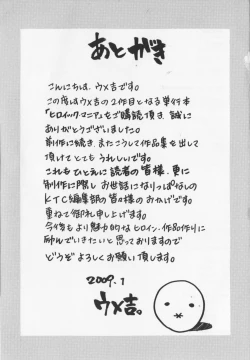 あとがき
こんにちは、ウメ吉です。
この度はウメ吉の2作目となる単行本
「ヒロイック・マニア」をご購読頂き、誠に
ありがとうございました。
前作に続き、またこうして作品集を出して
頂けてとてもうれしいです。
これもひとえに読者の皆様、更に
制作に際し お世話になりっぱなしの
KTC編集部の皆々様のおかげです。
重ねて御礼申し上げます。
今後もより魅力的なヒロイン、作品作りに
励んでいきたいと思っておりますので
どうぞよろしくお願い致します。
2009.1
ウメ吉。